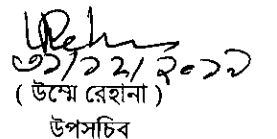 ৩১/১২/২০১৭
( উম্মে রেহানা )
উপসচিব